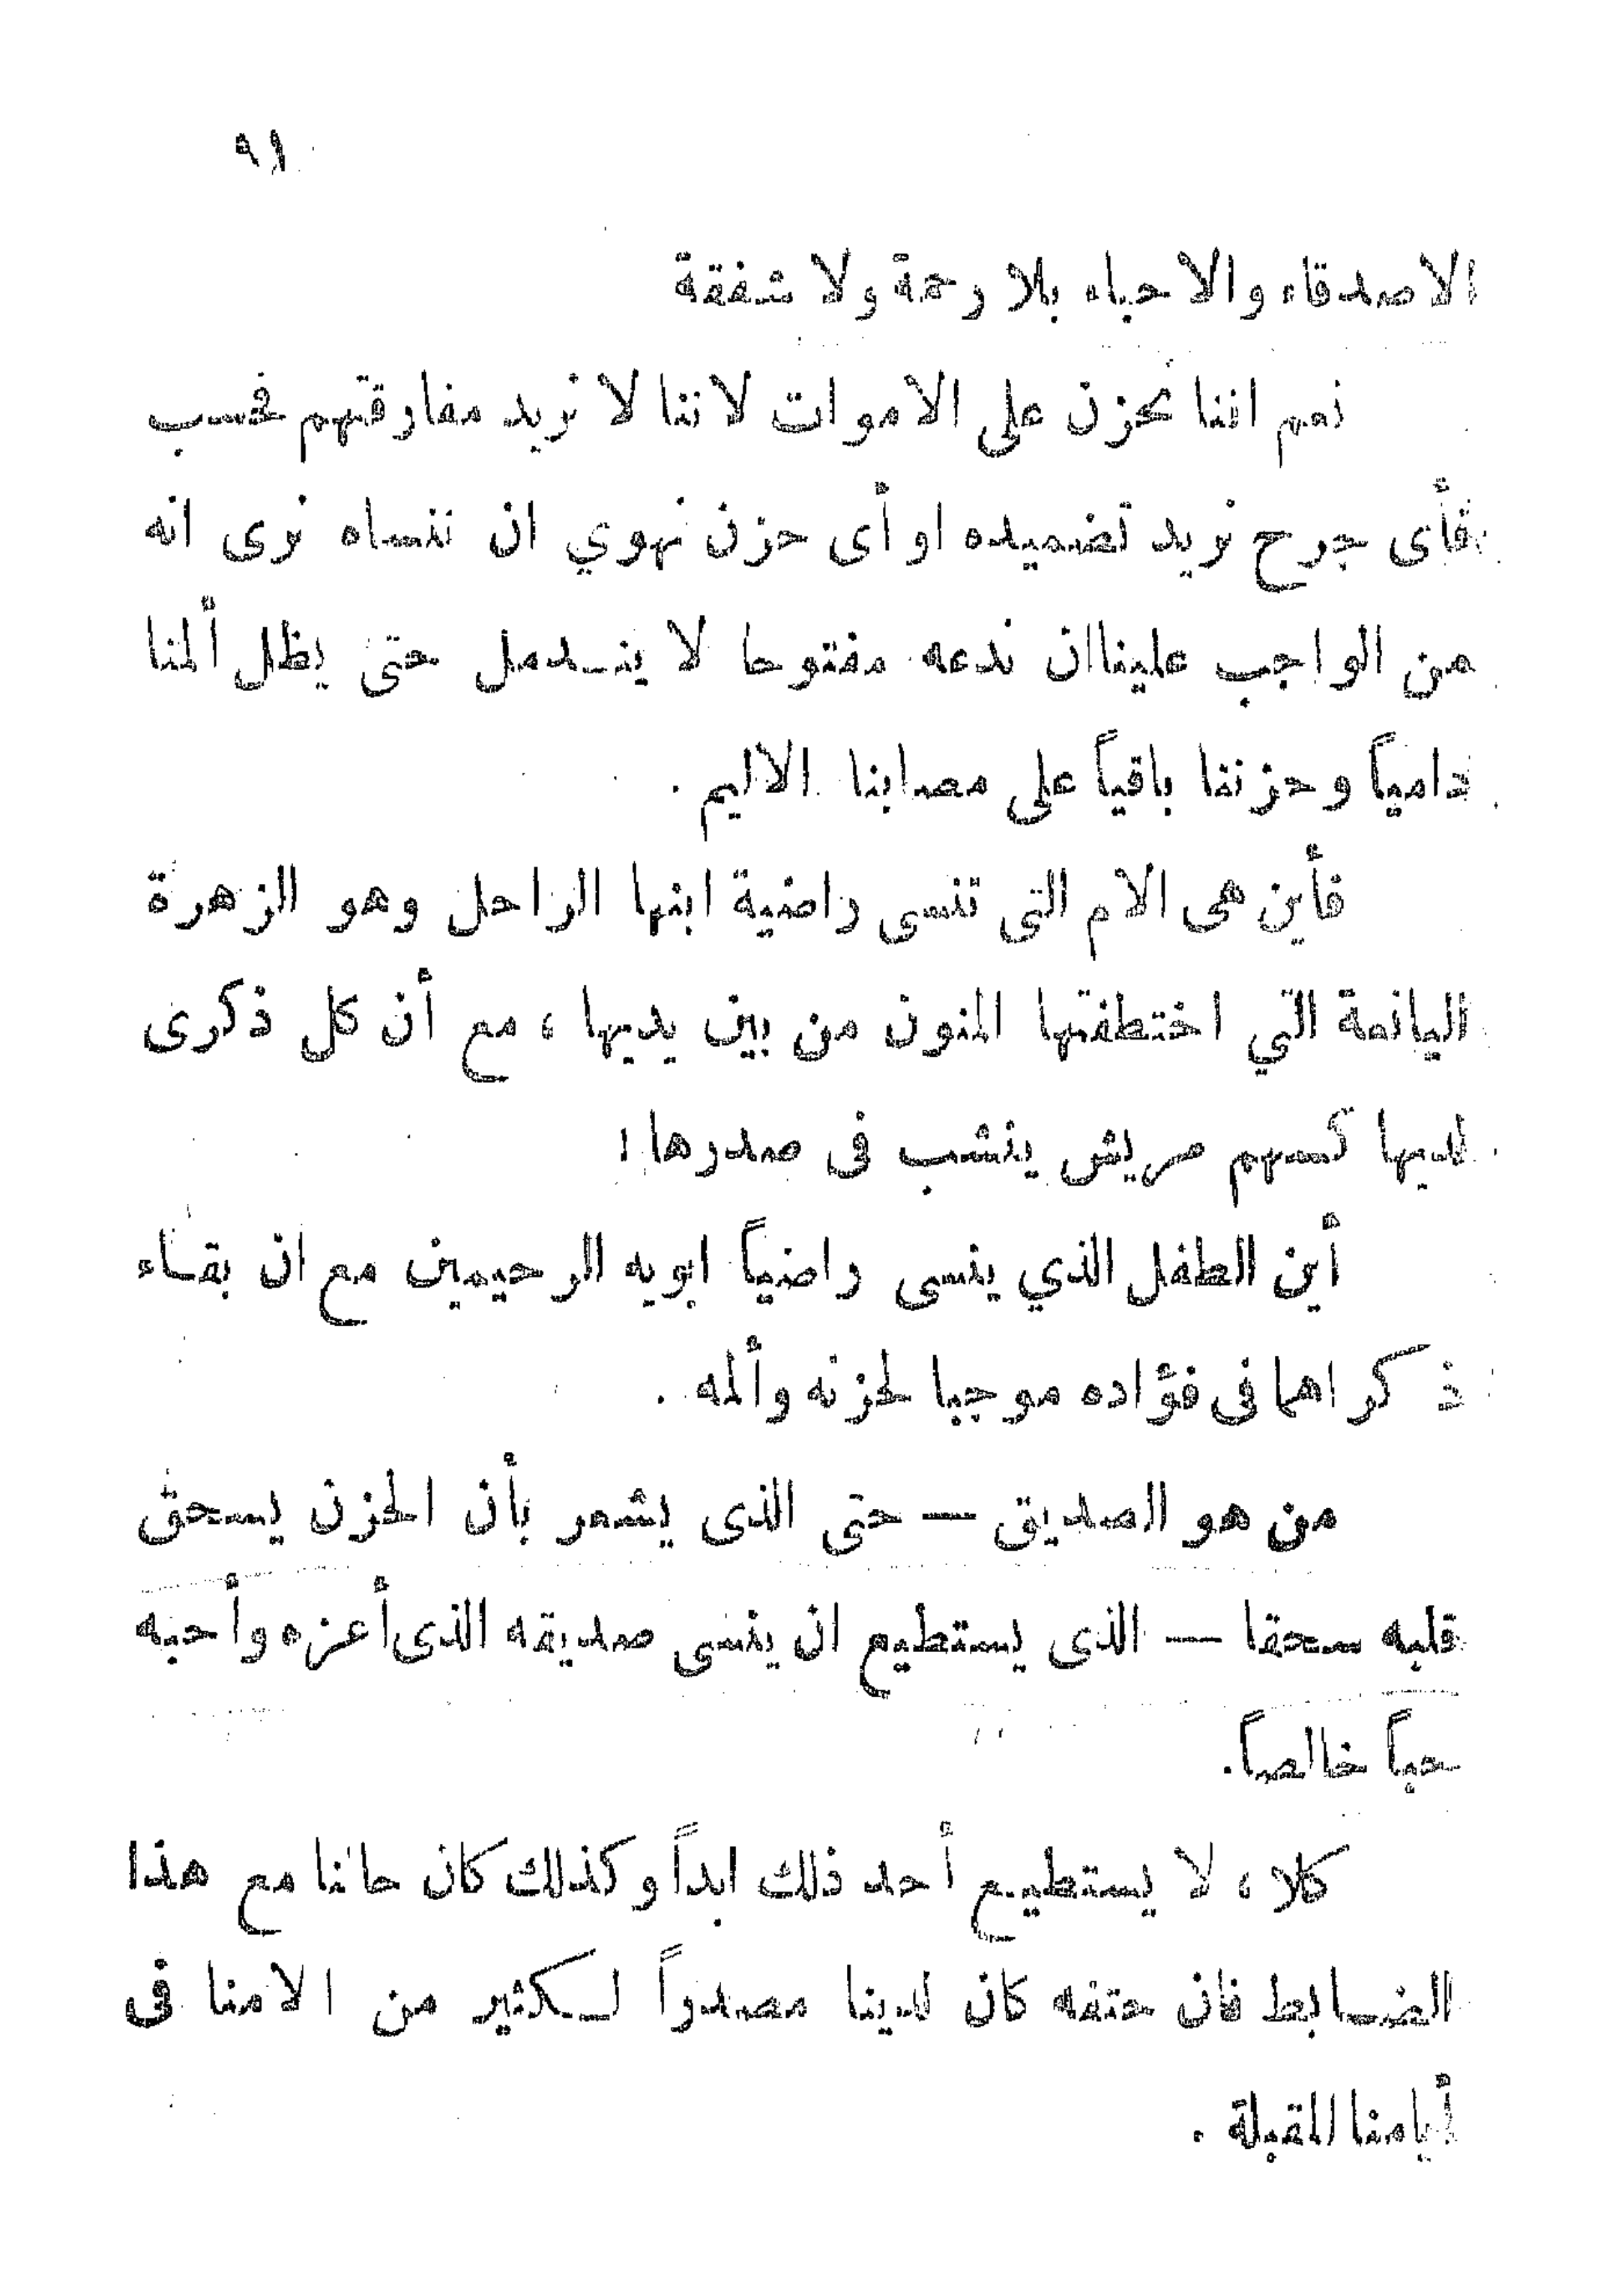 ٩١
الاصدقاء والاحباء بلا رحمة ولا شفقة
نعم اننا نحزن على الاموات لاننا لا نريد مفارقتهم فحسب
فأى جرح نريد تضميده او أى حزن نهوي ان ننساه نرى انه
من الواجب عليناان ندعه مفتوحا لا ينـدمل حتى يظل ألمنا
دامياً وحزننا باقياً على مصابنا الاليم .
فأين هى الام التى تنسى راضية ابنها الراحل وهو الزهرة
اليانعة التي اختطفتها المنون من بين يديها ، مع أن كل ذكرى
لديها كسهم مريش ينشب فى صدرها !
أين الطفل الذي ينسى راضياً ابويه الرحيمين مع ان بقـاء
ذكراهما فى فؤاده موجبا لحزنه وألمه .
من هو الصديق — حتى الذى يشعر بأن الحزن يسحق
قلبه سحقا — الذى يستطيع ان ينسى صديقه الذى أعزه وأحبه
حباً خالصاً.
كلا ، لا يستطيـع أحد ذلك ابداً وكذلك كان حالنا مع هذا
الضـابط فان حتفه كان لدينا مصدراً لـكثير من الامنا فى
أيامنا المقبلة .